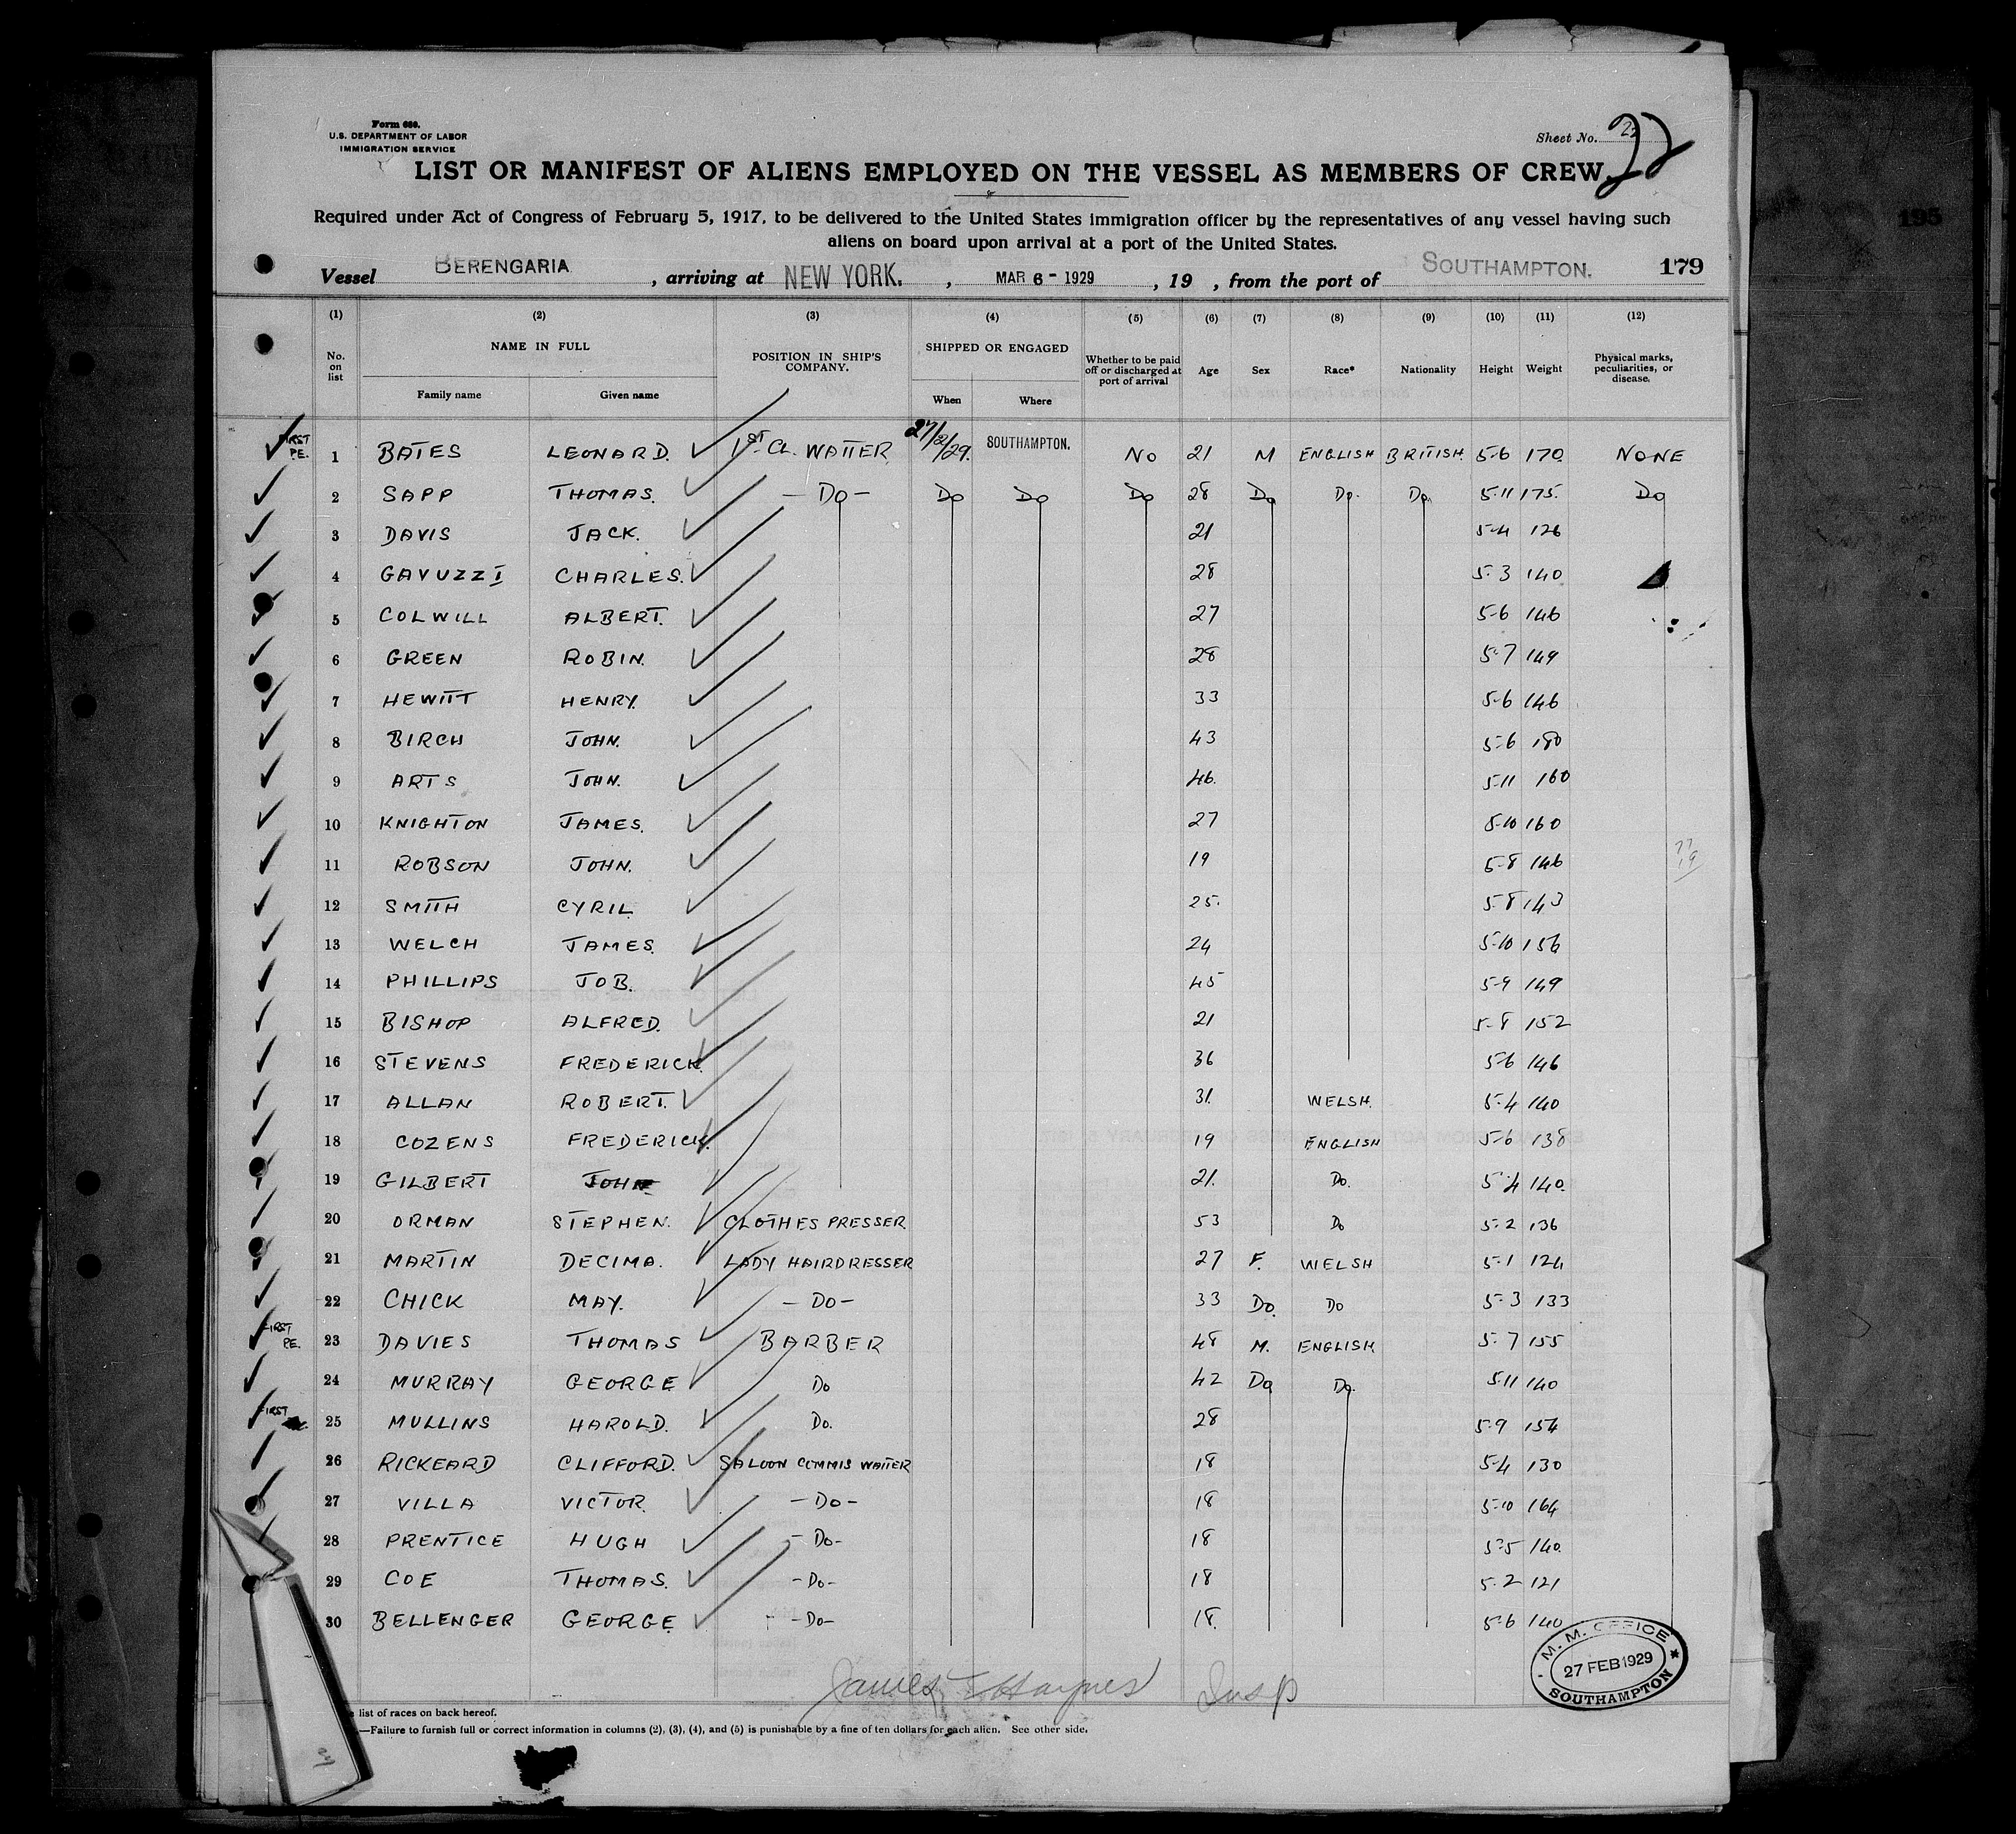 Form 680.
U.S. DEPARTMENT OF LABOR
IMMIGRATION SERVICE
Sheet No. 22
22
LIST OR MANIFEST OF ALIENS EMPLOYED ON THE VESSEL AS MEMBERS OF CREW
Required under Act of Congress of February 5, 1917, to be delivered to the United States immigration officer by the representatives of any vessel having such
aliens on board upon arrival at a port of the United States.
Vessel BERENGARIA, arriving at NEW YORK., MAR 6 - 1929, 19 , from the port of SOUTHAMPTON. 179
195
(1) (2) (3) (4) (5) (6) (7) (8) (9) (10) (11) (12)
No. on list NAME IN FULL POSITION IN SHIP'S COMPANY. SHIPPED OR ENGAGED Whether to be paid off or discharged at port of arrival Age Sex Race* Nationality Height Weight Physical marks, peculiarities, or disease.
Family name Given name When Where
FIRST PE. 1 BATES LEONARD. 1ST CL. WAITER 27/2/29. SOUTHAMPTON. NO 21 M ENGLISH BRITISH. 5-6 170 NONE
2 SAPP THOMAS. - DO - DO DO DO 28 DO DO. DO 5-11 175. DO
3 DAVIS JACK. 21 5-4 126
4 GAVUZZI CHARLES. 28 5-3 140
5 COLWILL ALBERT. 27 5-6 146
6 GREEN ROBIN. 28 5-7 149
7 HEWITT HENRY. 33 5-6 146
8 BIRCH JOHN. 43 5-6 180
9 ARTS JOHN. 46. 5-11 160
10 KNIGHTON JAMES. 27 5-10 160
11 ROBSON JOHN. 19 5-8 146
12 SMITH CYRIL 25. 5-8 143
13 WELCH JAMES. 24 5-10 156
14 PHILLIPS JOB. 45 5-9 149
15 BISHOP ALFRED. 21 5-8 152
16 STEVENS FREDERICK. 36 5-6 146
17 ALLAN ROBERT. 31. WELSH. 5-4 140
18 COZENS FREDERICK. 19 ENGLISH 5-6 138
19 GILBERT JOHN 21. DO. 5-4 140.
20 ORMAN STEPHEN. CLOTHES PRESSER 53 DO 5-2 136
21 MARTIN DECIMA. LADY HAIRDRESSER 27 F. WELSH 5-1 124
22 CHICK MAY. - DO - 33 DO. DO 5-3 133
FIRST PE. 23 DAVIES THOMAS BARBER 48 M. ENGLISH 5-7 155
24 MURRAY GEORGE DO 42 DO DO. 5-11 140
FIRST 25 MULLINS HAROLD. DO. 28 5-9 154
26 RICKEARD CLIFFORD. SALOON COMMIS WAITER 18 5-4 130
27 VILLA VICTOR. - DO - 18 5-10 164
28 PRENTICE HUGH - DO - 18 5-5 140.
29 COE THOMAS. - DO - 18 5-2 121
30 BELLENGER GEORGE - DO - 18. 5-6 140
M. M. OFFICE
27 FEB 1929
SOUTHAMPTON
James Haynes Insp
list of races on back hereof.
—Failure to furnish full or correct information in columns (2), (3), (4), and (5) is punishable by a fine of ten dollars for each alien. See other side.